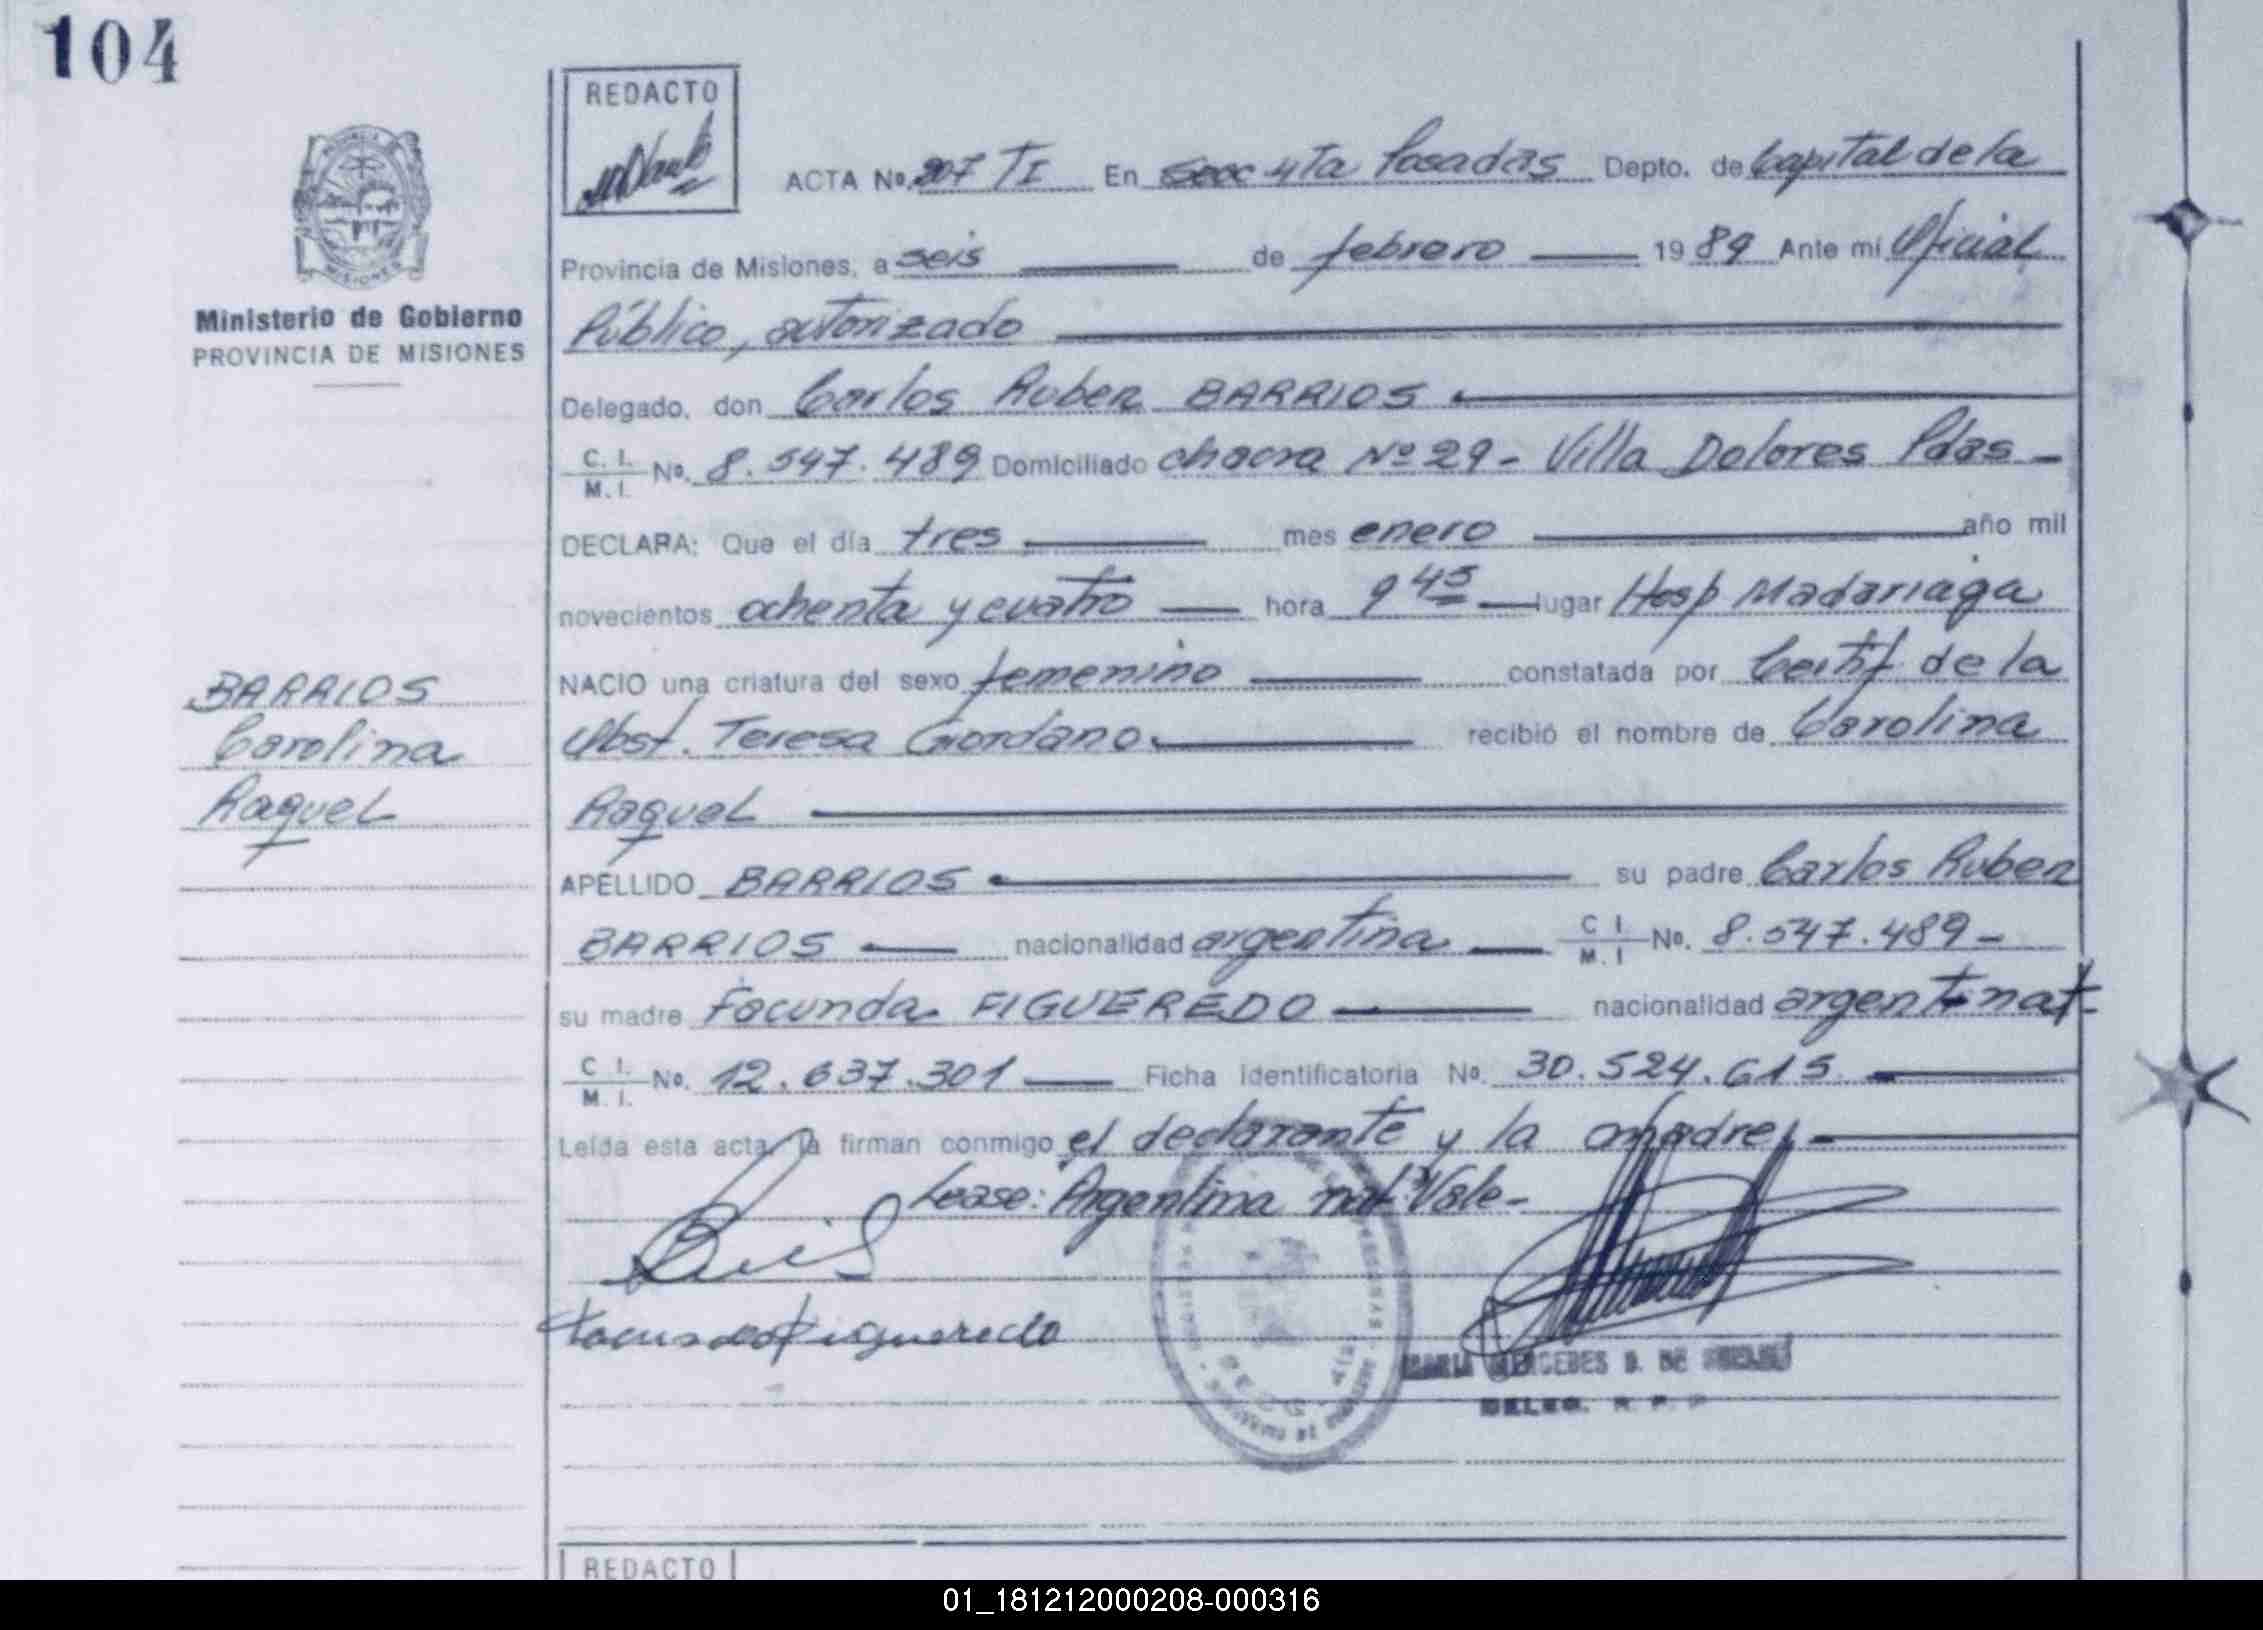 104
REDACTO
ACTA Nº 207 TI En Secc 4Ta Posadas Depto. de Capital de la
Provincia de Misiones, a seis de febrero 1989 Ante mi Oficial
Público, autorizado
MISIONES
Ministerio de Gobierno
PROVINCIA DE MISIONES
Delegado, don Carlos Ruben BARRIOS
C. I. M. I. Nº. 8.547.489 Domiciliado chacra Nº 29 - Villa Dolores Pdas -
DECLARA: Que el día tres mes enero año mil
novecientos ochenta y cuatro hora 9 45 lugar Hosp Madariaga
NACIO una criatura del sexo femenino constatada por Certif de la
Obst. Teresa Giordano recibió el nombre de Carolina
Raquel
BARRIOS
Carolina
Raquel
APELLIDO BARRIOS su padre Carlos Ruben
BARRIOS nacionalidad argentina C I. M. I Nº. 8.547.489 -
su madre Facunda FIGUEREDO nacionalidad argentina nat
C I. M. I. Nº. 12.637.301 Ficha Identificatoria Nº. 30.524.615
Leída esta acta, la firman conmigo el declarante y la madre -
Lease: "Argentina nat" Vale -
Facunda Figueredo
MARIA MERCEDES D. DE
DELEG. R. P. P
REDACTO
01_181212000208-000316